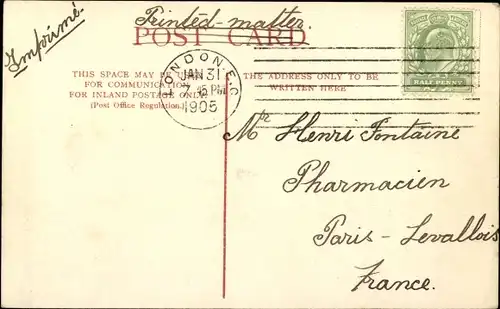 Imprimé.
Printed-matter.
POST CARD
THIS SPACE MAY BE USED
FOR COMMUNICATION
FOR INLAND POSTAGE ONLY
(Post Office Regulation.)
THE ADDRESS ONLY TO BE
WRITTEN HERE
LONDON. E.C
JAN 31
1905
POSTAGE & REVENUE
HALF PENNY
Mr Henri Fontaine
Pharmacien
Paris-Levallois
France.